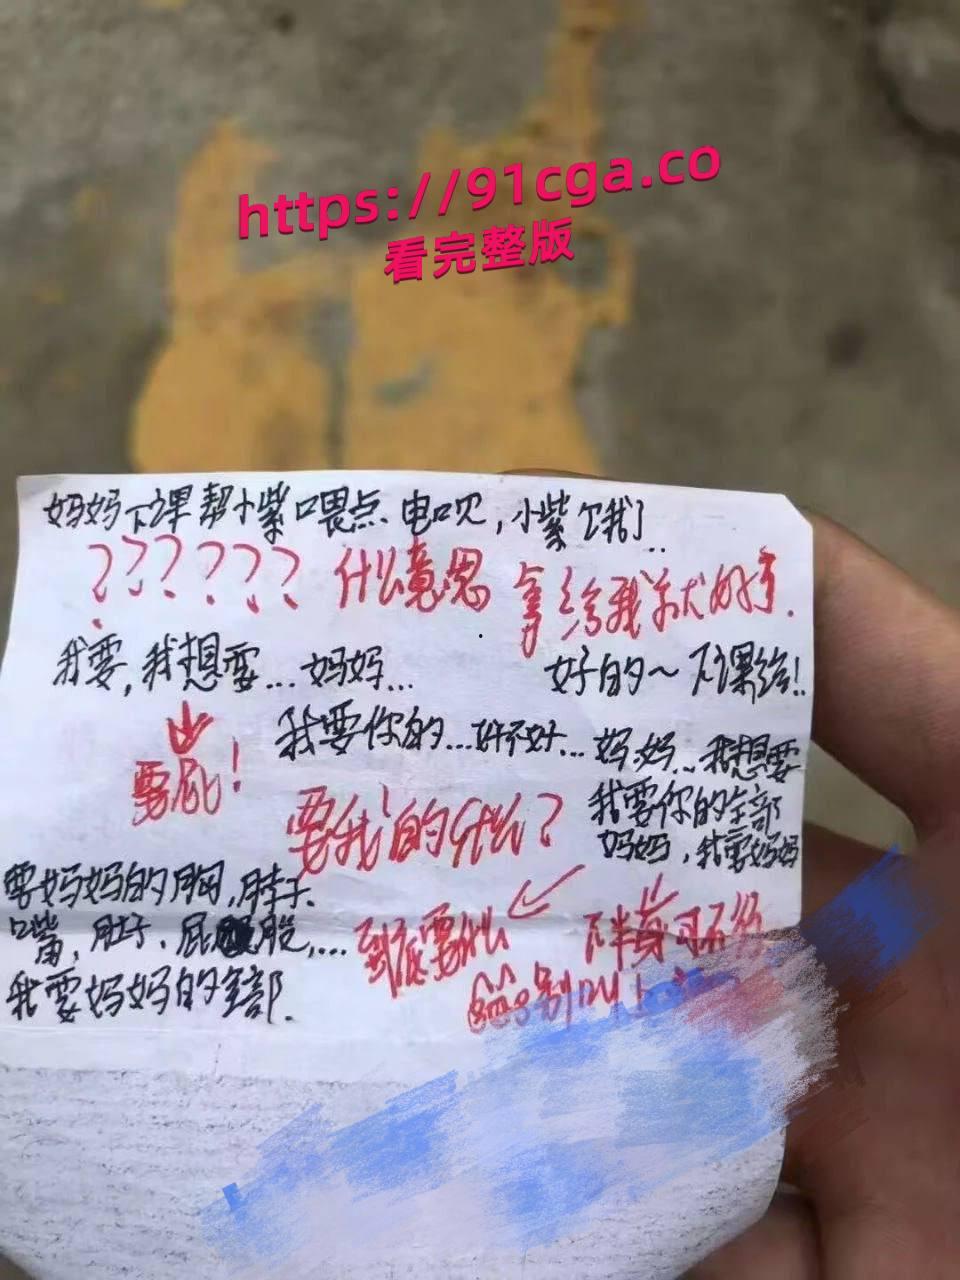 https://91cga.co
看完整版
妈妈下课帮小紫喂点电呗，小紫饿了..
??????
什么意思
拿给我就好了.
我要，我想要...妈妈...
好的～下课给!!
要屁！
我要你的...好不好...
妈妈...我想要
我要你的全部
妈妈，我要妈妈
要我的什么？
要妈妈的胸，脖子.
嘴，肚子、屁股，...
我要妈妈的全部.
到底要什么
下半身可不
别叫